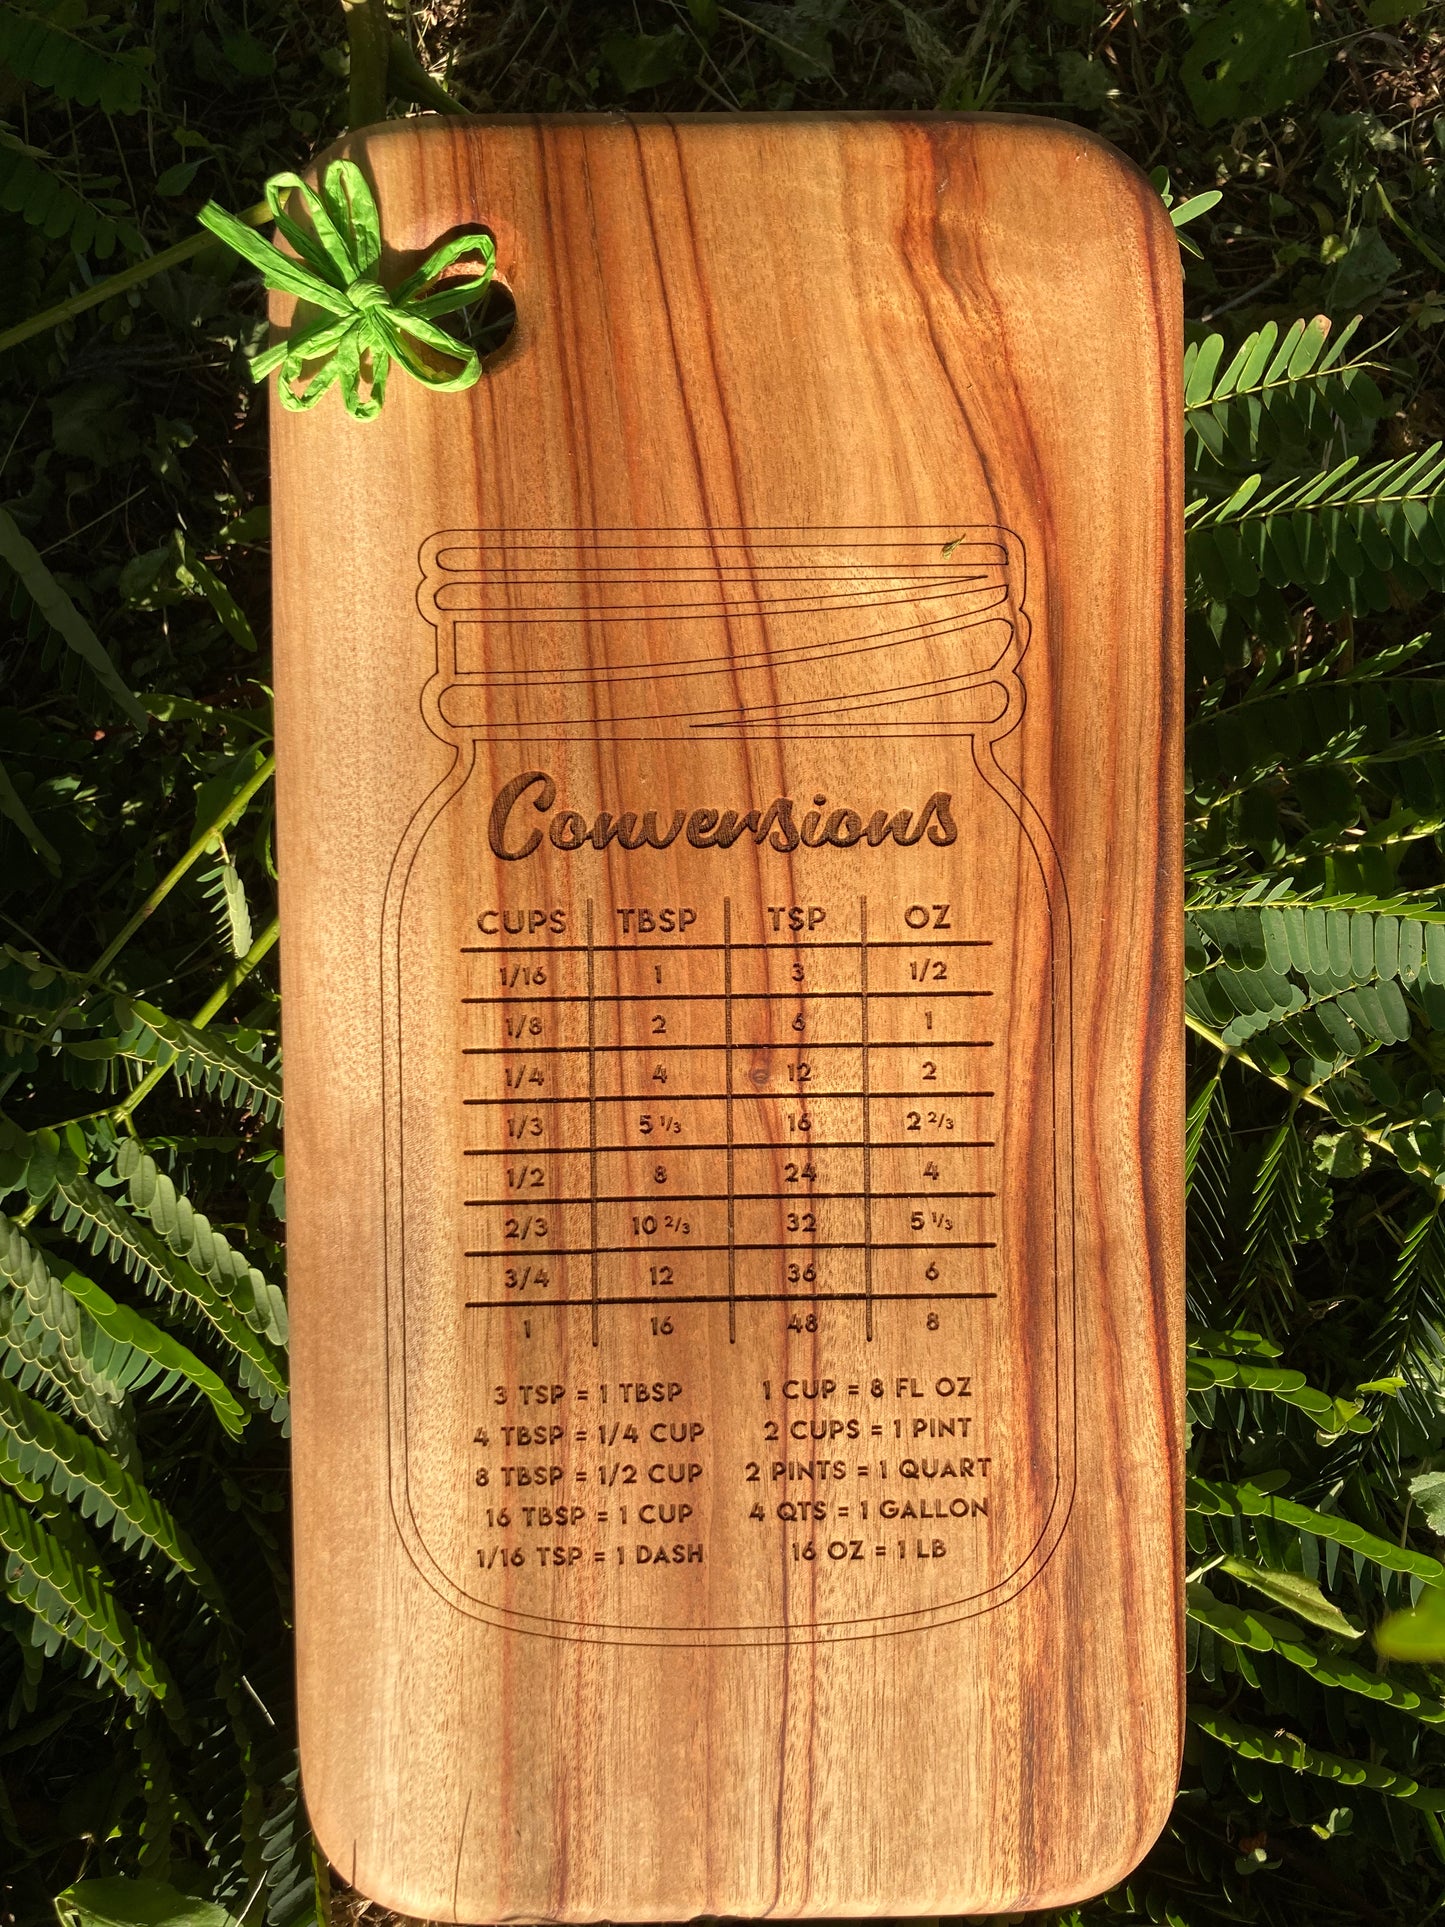 Conversions
CUPS TBSP TSP OZ
1/16 1 3 1/2
1/8 2 6 1
1/4 4 12 2
1/3 5 1/3 16 2 2/3
1/2 8 24 4
2/3 10 2/3 32 5 1/3
3/4 12 36 6
1 16 48 8
3 TSP = 1 TBSP
4 TBSP = 1/4 CUP
8 TBSP = 1/2 CUP
16 TBSP = 1 CUP
1/16 TSP = 1 DASH
1 CUP = 8 FL OZ
2 CUPS = 1 PINT
2 PINTS = 1 QUART
4 QTS = 1 GALLON
16 OZ = 1 LB